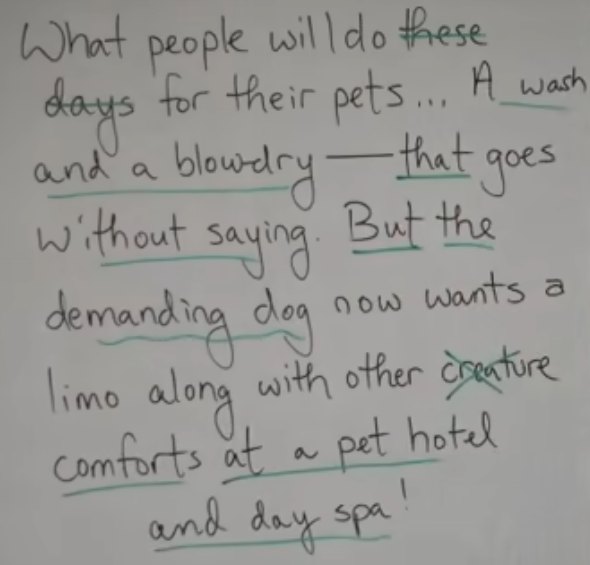 What people will do these
days for their pets... A wash
and a blowdry — that goes
without saying. But the
demanding dog now wants a
limo along with other creature
comforts at a pet hotel
and day spa!